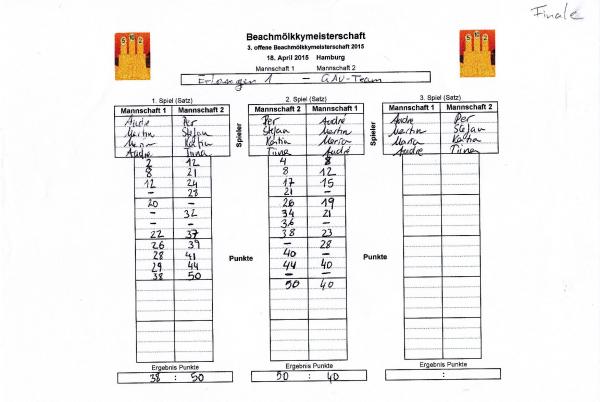 Finale
Beachmölkkymeisterschaft
3. offene Beachmölkkymeisterschaft 2015
18. April 2015 Hamburg
Mannschaft 1 Mannschaft 2
Erlangen 1 – GAV-Team
1. Spiel (Satz) 2. Spiel (Satz) 3. Spiel (Satz)
Mannschaft 1 Mannschaft 2 Mannschaft 2 Mannschaft 1 Mannschaft 1 Mannschaft 2
Spieler Spieler
André Per Per André André Per
Martin Stefan Stefan Martin Martin Stefan
Maria Katia Katia Maria Maria Katia
André Tiina Tiina André André Tiina
2 12 4 8
8 21 8 12
12 24 17 15
- 28 21 -
20 - 26 19
- 32 34 21
- - 36 -
22 37 38 23
26 39 - 28
28 41 40 -
29 44 44 40
38 50 - -
50 40
Punkte Punkte
Ergebnis Punkte Ergebnis Punkte Ergebnis Punkte
38 : 50 50 : 40 :